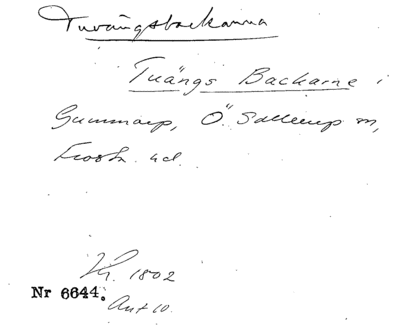 Tuvängsbackarna
Tuängs Backarne i
Gummarp, Ö. Sallerup sn,
Frosta hd.
1802
Nr 6644.
Ant 10